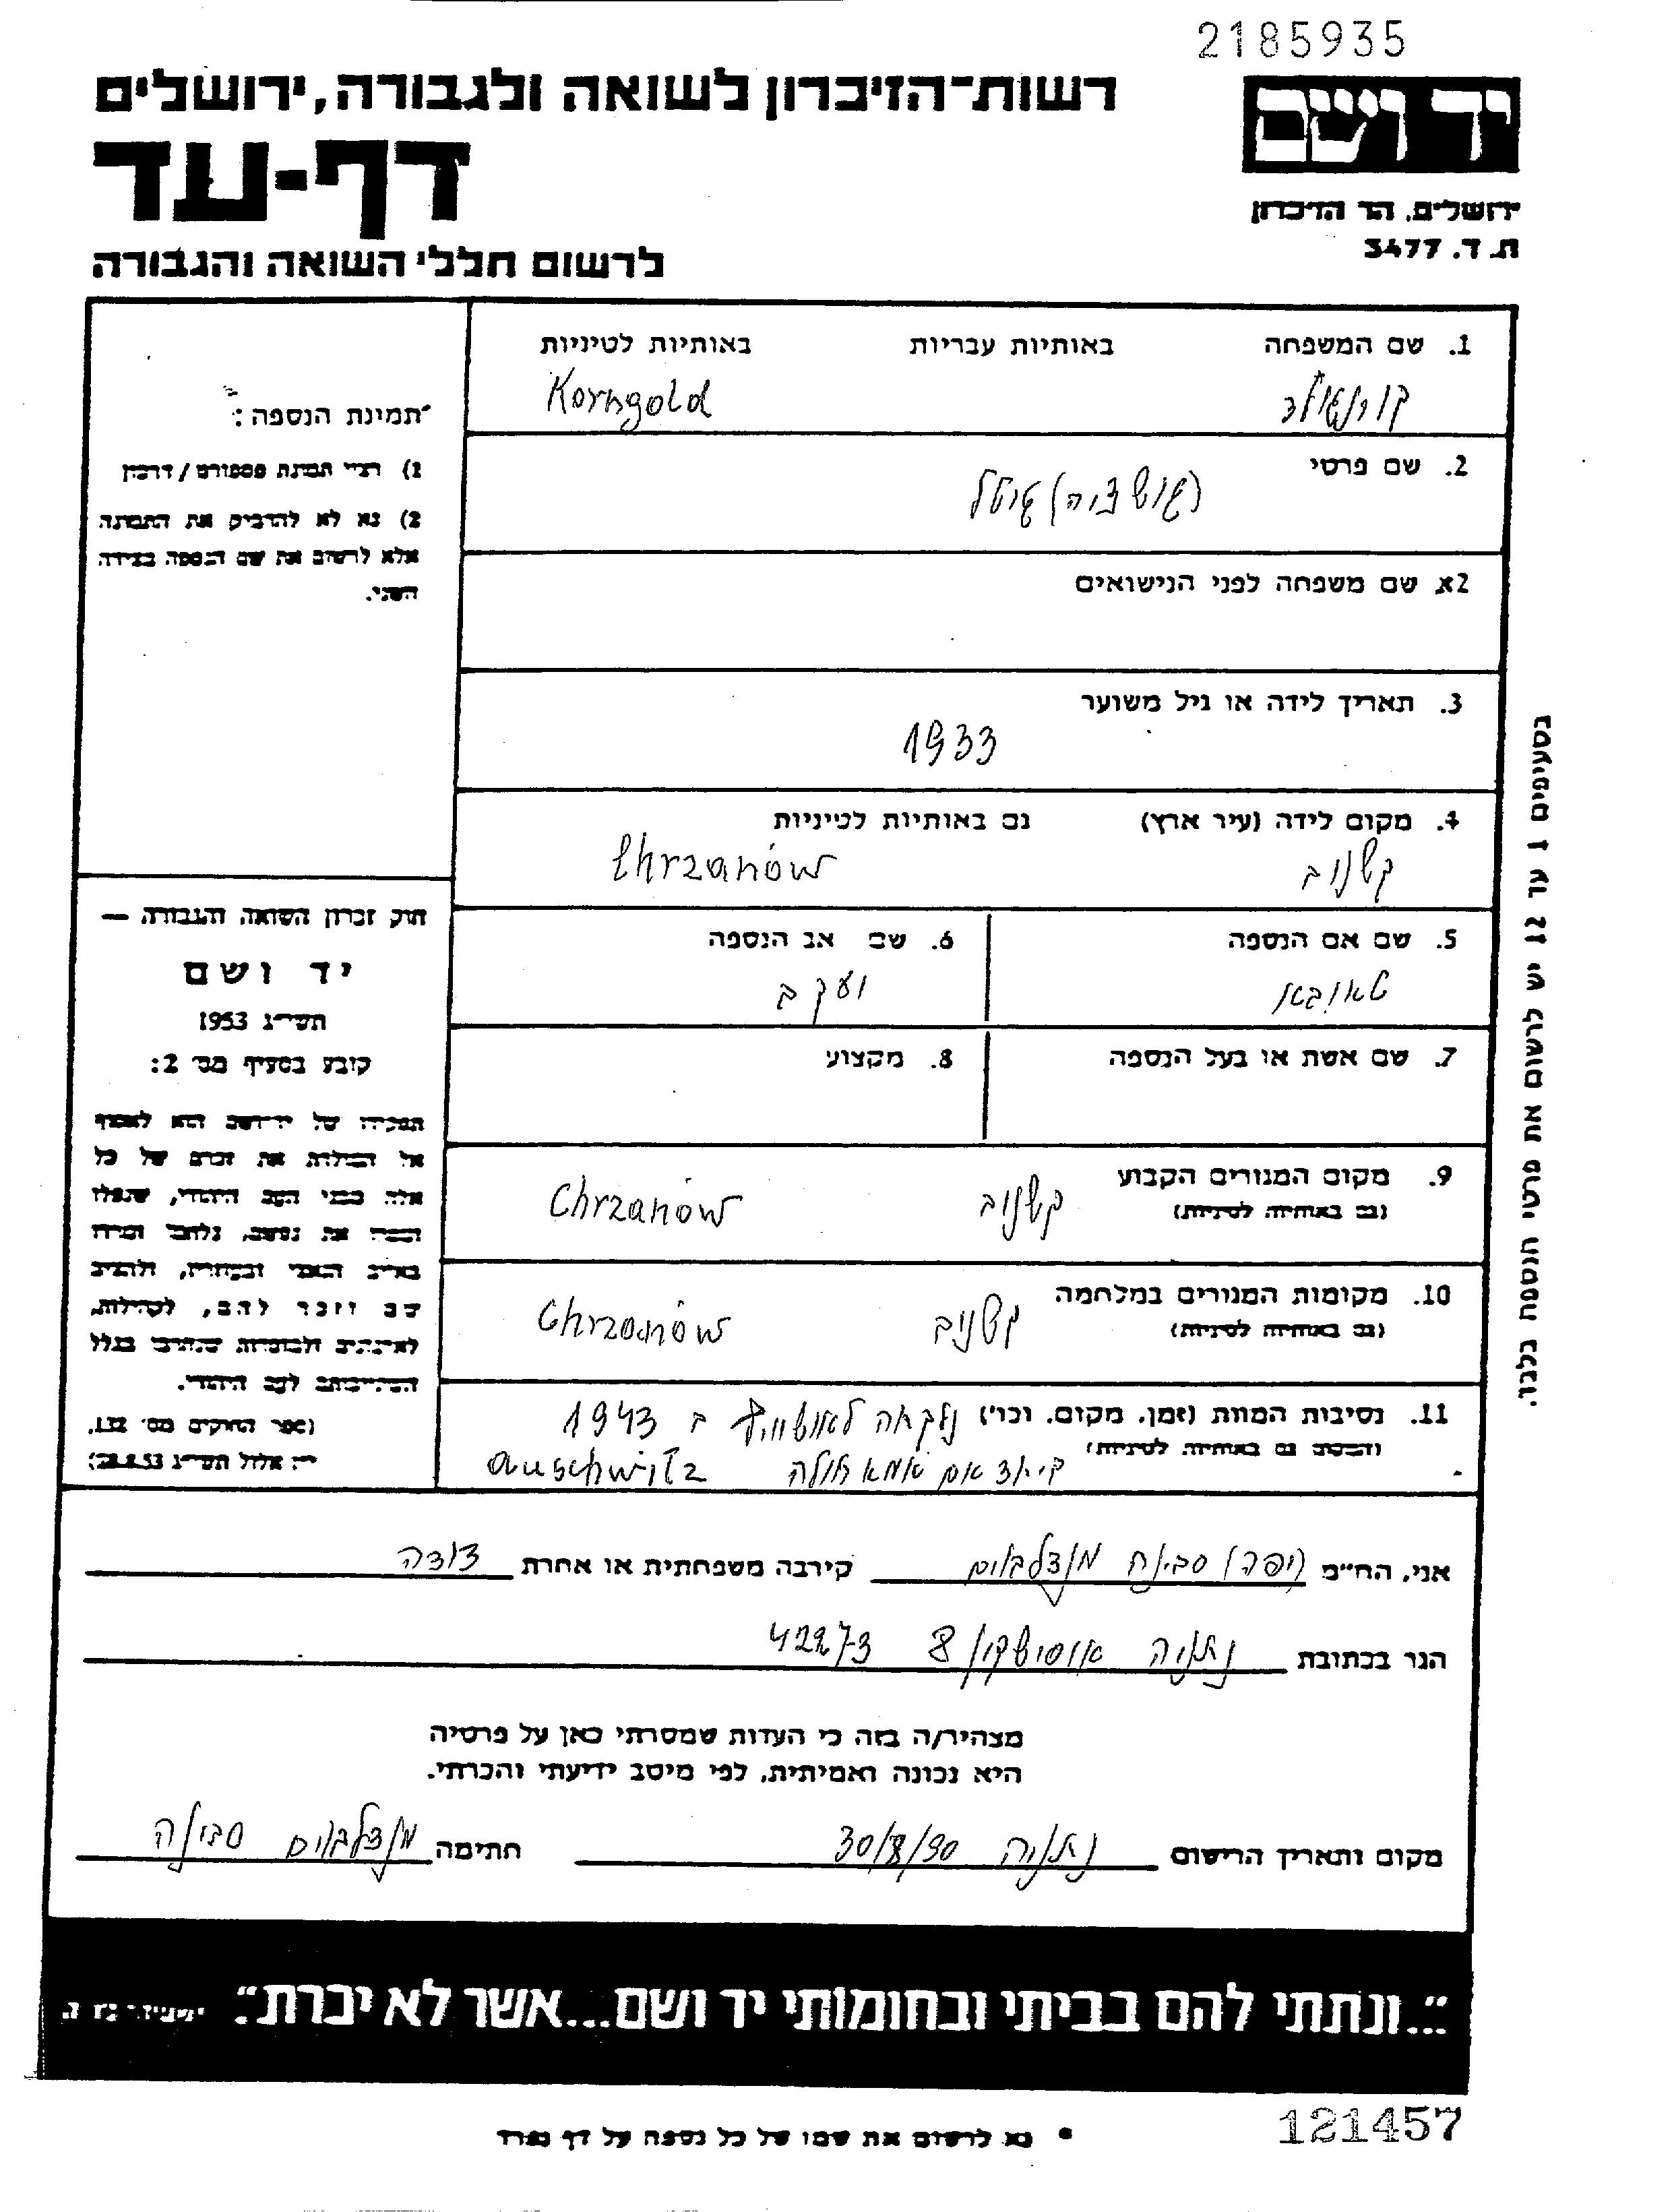 2185935
רשות-הזיכרון לשואה ולגבורה, ירושלים
יד ושם
דף-עד
ירושלים, הר הזיכרון
ת.ד. 3477
לרשום חללי השואה והגבורה
1. שם המשפחה באותיות עבריות באותיות לטיניות
קורנגולד Korngold
2. שם פרטי
3. תאריך לידה או גיל משוער
1933
4. מקום לידה (עיר ארץ) גם באותיות לטיניות
קשנוב Chrzanów
5. שם אם הנספה 6. שם אב הנספה
טאובא יעקב
7. שם אשת או בעל הנספה 8. מקצוע
9. מקום המגורים הקבוע
(גם באותיות לטיניות)
קשנוב Chrzanów
10. מקומות המגורים במלחמה
(גם באותיות לטיניות)
קשנוב Chrzanów
11. נסיבות המוות (זמן, מקום, וכו') נלקחה לאושוויץ ב 1943
ביחד עם אמא Auschwitz
תמונת הנספה:
1) רצוי תמונת פספורט/דרכון
2) נא לא להדביק את התמונה
אלא לרשום את שם הנספה בצידה
השני.
חוק זכרון השואה והגבורה —
יד ושם
תשי"ג 1953
קובע בסעיף מס' 2:
תפקידו של יד-ושם הוא לאסוף
אל המולדת את זכרם של כל
אלה מבני העם היהודי, שנפלו
ומסרו את נפשם, נלחמו ומרדו
באויב הנאצי ובעוזריו, ולהציב
שם וזכר להם, לקהילות,
לארגונים ולמוסדות שנחרבו בגלל
השתייכותם לעם היהודי.
(ספר החוקים מס' 132,
י"ז אלול תשי"ג 28.8.53)
בסעיפים 1 עד 12 יש לרשום את פרטי הנספה בלבד.
אני, הח"מ (יפה) סבינה מנדלבוים קירבה משפחתית או אחרת דודה
הגר בכתובת נתניה אוסישקין 8 42273
מצהיר/ה בזה כי העדות שמסרתי כאן על פרטיה
היא נכונה ואמיתית, לפי מיטב ידיעתי והכרתי.
מקום ותאריך הרישום נתניה 30/8/90 חתימה מנדלבוים סבינה
"...ונתתי להם בביתי ובחומותי יד ושם...אשר לא יכרת". ישעיהו נו ה
* נא לרשום את שמו של כל נספה על דף נפרד
121457